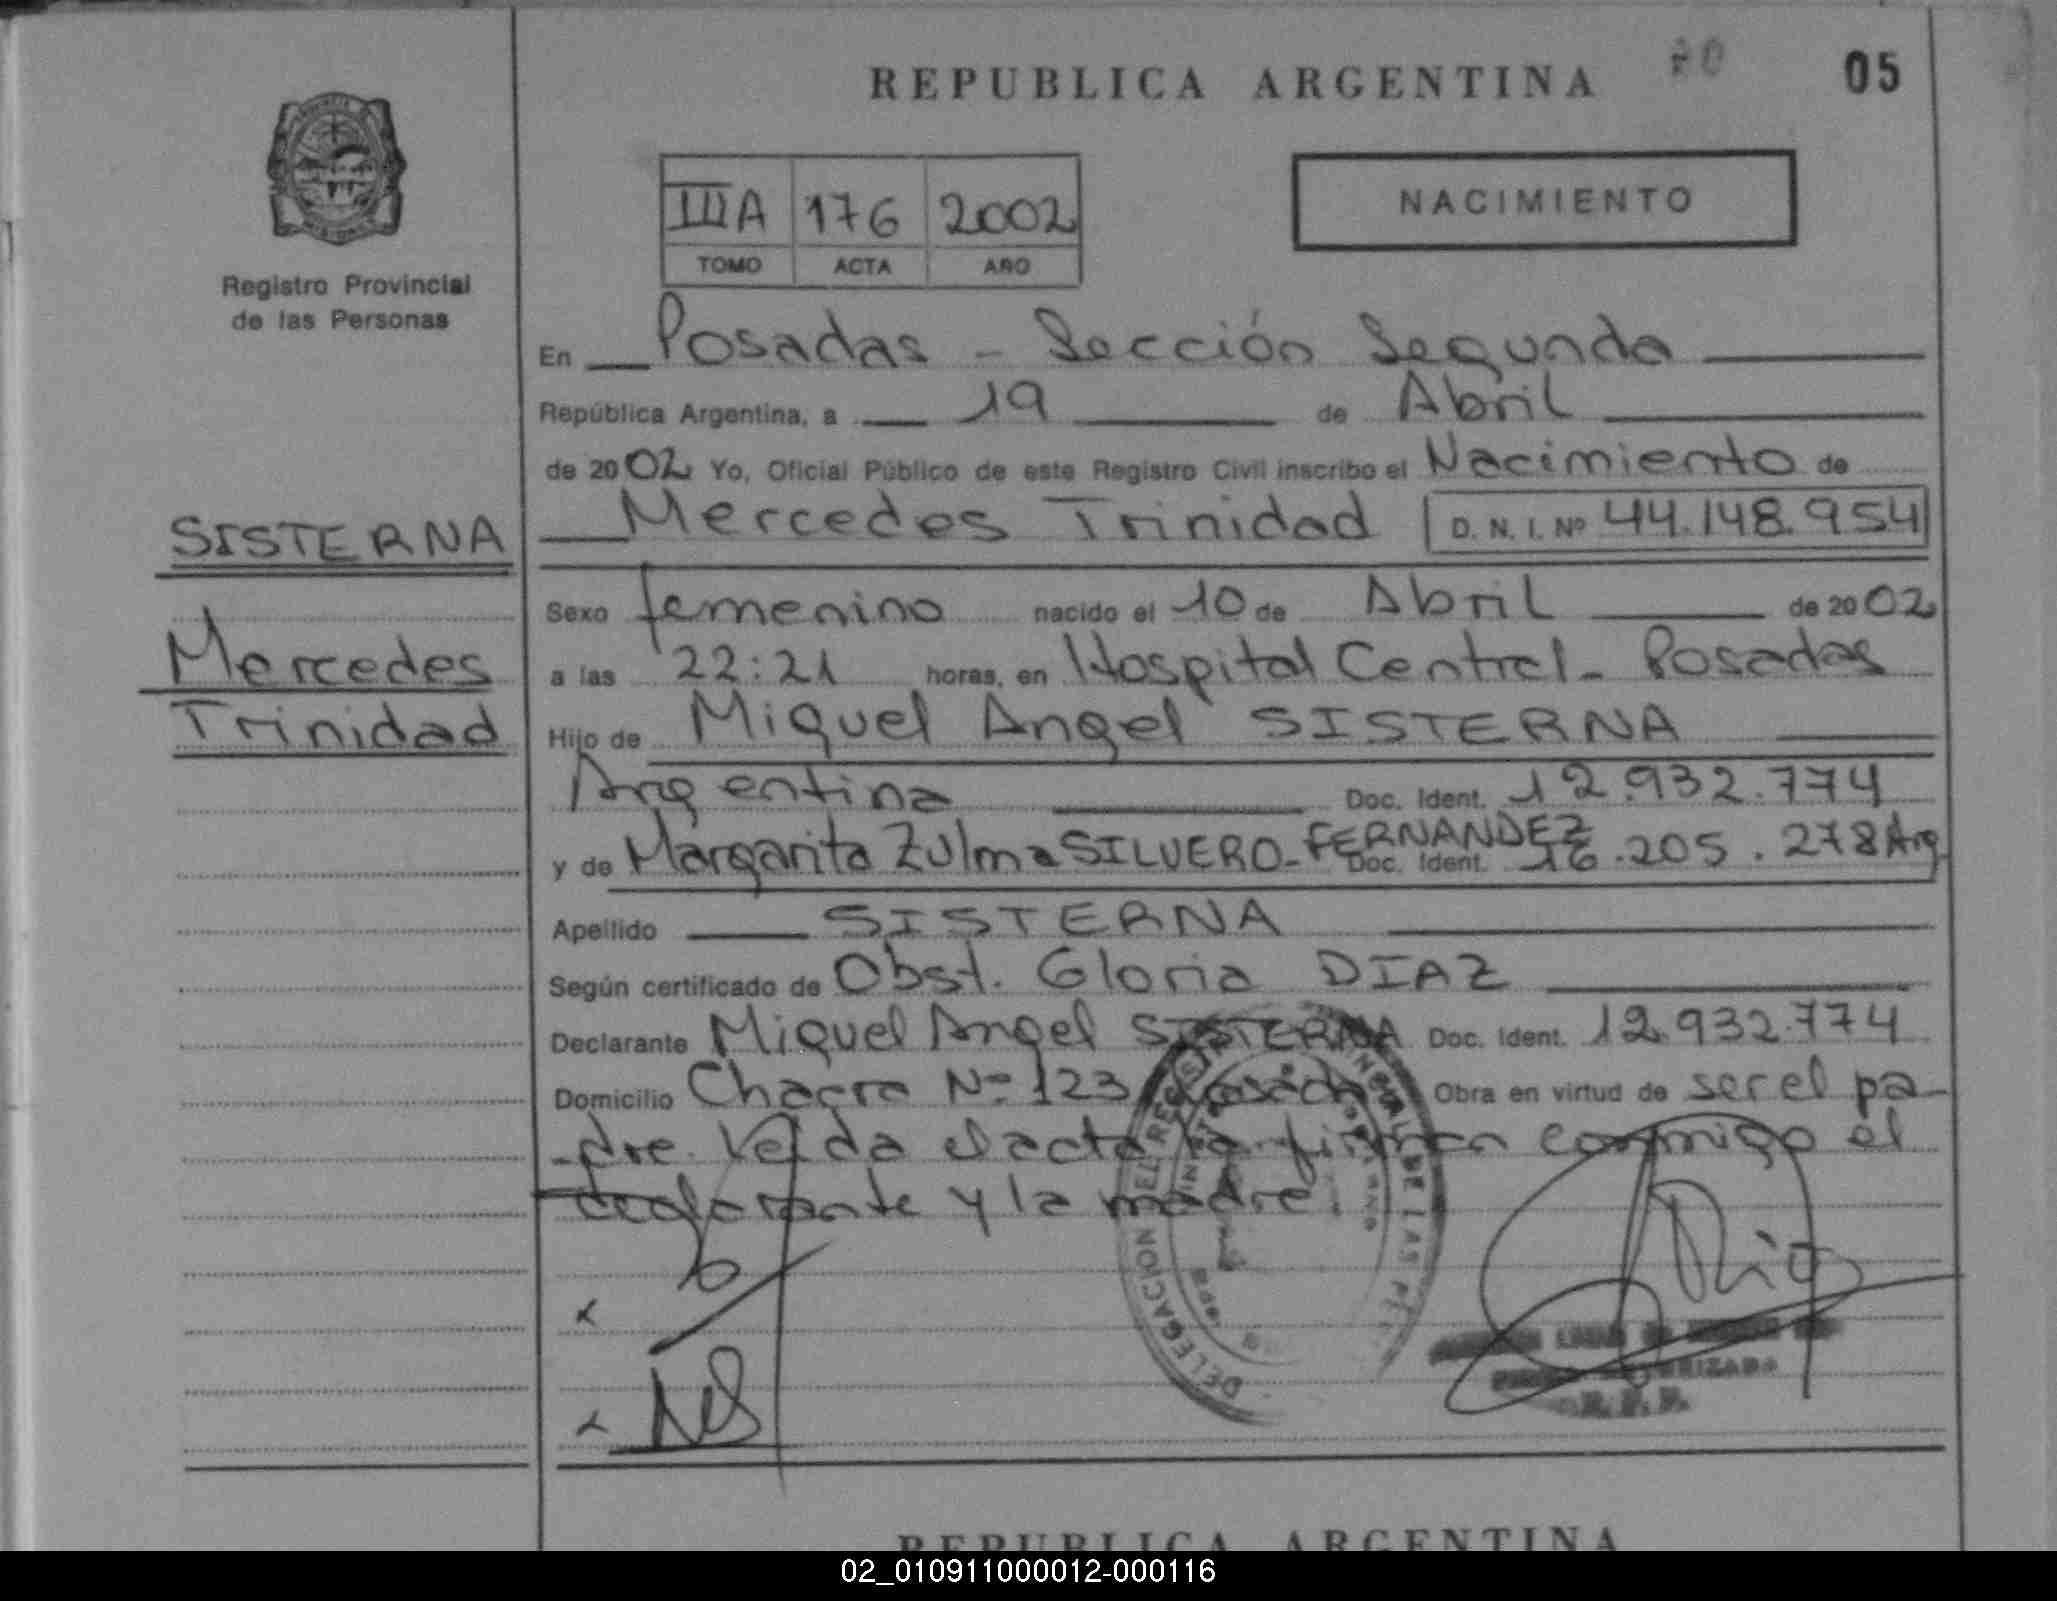 REPUBLICA ARGENTINA
05
Registro Provincial
de las Personas
IIIA 176 2002
TOMO ACTA AÑO
NACIMIENTO
En Posadas - Sección Segunda
República Argentina, a 19 de Abril
de 2002 Yo, Oficial Público de este Registro Civil inscribo el Nacimiento de
Mercedes Trinidad D. N. I. Nº 44.148.954
SISTERNA
Mercedes
Trinidad
Sexo femenino nacido el 10 de Abril de 2002
a las 22:21 horas, en Hospital Central - Posadas
Hijo de Miguel Angel SISTERNA
Argentina Doc. Ident. 12.932.774
y de Margarita Zulma SILVERO - FERNANDEZ Doc. Ident. 16.205.278 Arg
Apellido SISTERNA
Según certificado de Obst. Gloria DIAZ
Declarante Miguel Angel SISTERNA Doc. Ident. 12.932.774
Domicilio Chacra Nº 123 Posadas Obra en virtud de ser el pa-
-dre. Leída el acta la firman conmigo el
declarante y la madre.
DELEGACION DEL REGISTRO PROVINCIAL DE LAS
REPUBLICA ARGENTINA
02_010911000012-000116